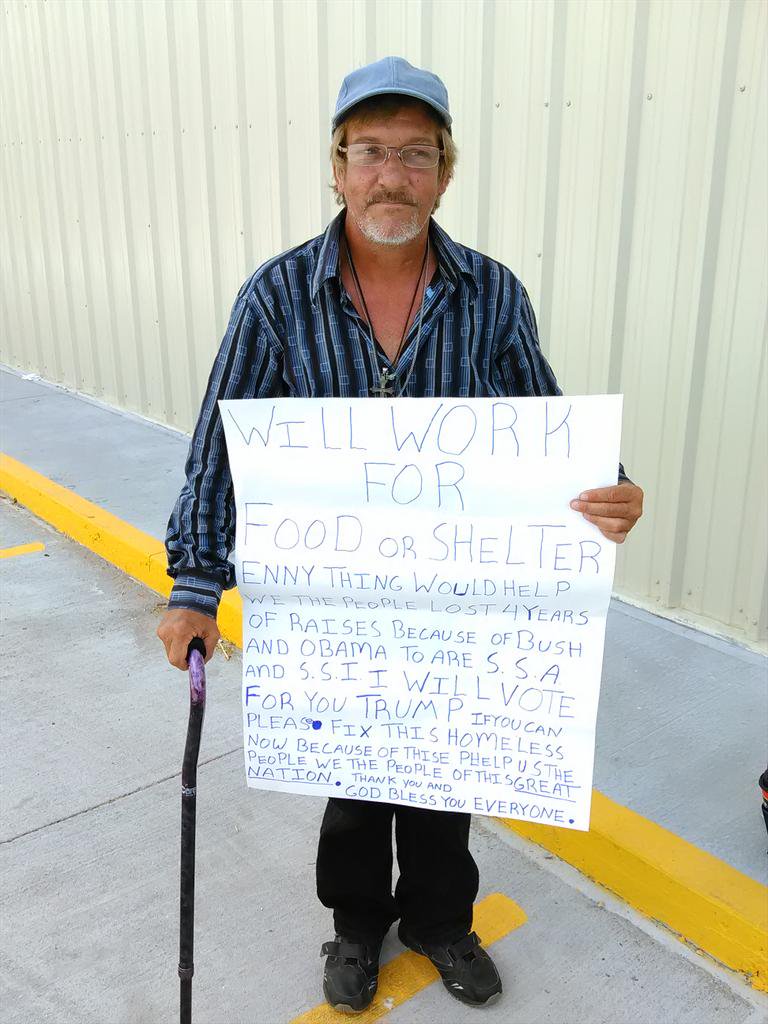 WILL WORK
FOR
FOOD OR SHELTER
ENNY THING WOULD HELP
WE THE PEOPLE LOST 4 YEARS
OF RAISES BECAUSE OF BUSH
AND OBAMA TO ARE S.S.A
AND S.S.I. I WILL VOTE
FOR YOU TRUMP IF YOU CAN
PLEAS FIX THIS HOMELESS
NOW BECAUSE OF THISE PHELP US THE
PEOPLE WE THE PEOPLE OF THIS GREAT
NATION. THANK YOU AND
GOD BLESS YOU EVERYONE.